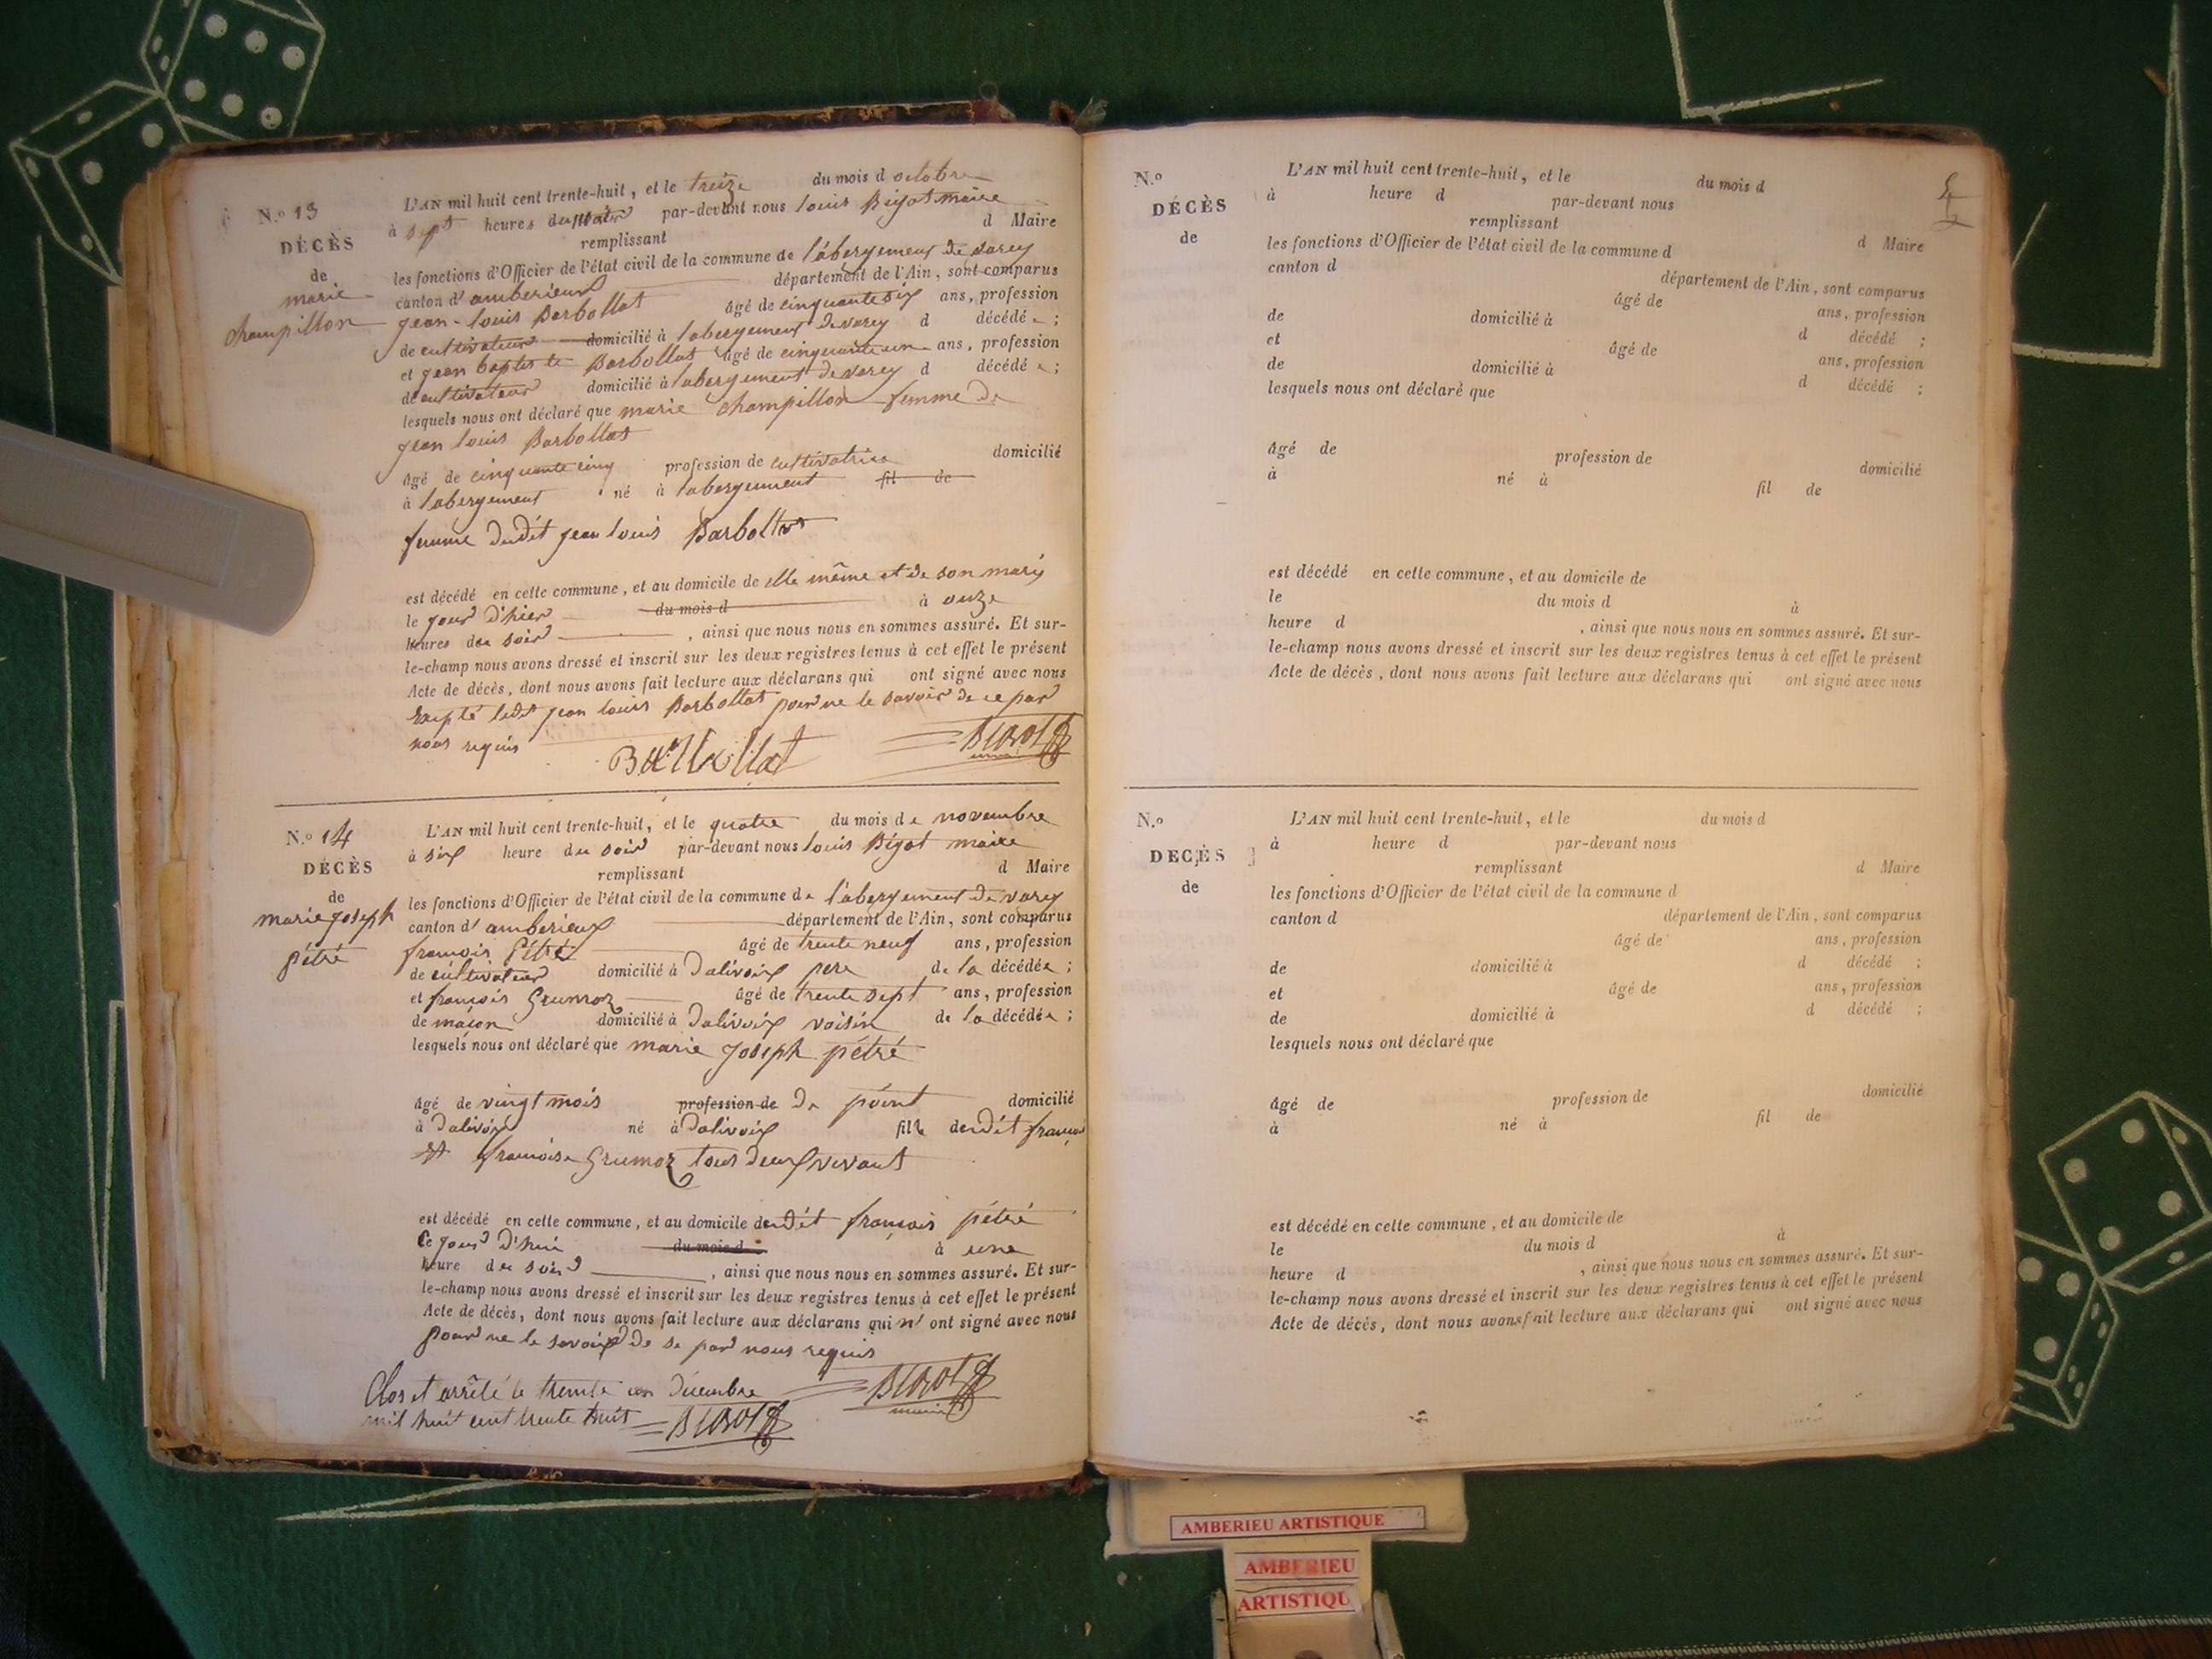 N.º 13
DÉCÈS
de
marie
champillon
L'AN mil huit cent trente-huit, et le treize du mois d octobre
à sept heures du matin par-devant nous louis Bigot maire
remplissant d Maire
les fonctions d'Officier de l'état civil de la commune de l'abergement de varey
canton d'amberieux département de l'Ain, sont comparus
jean-louis Barbollat âgé de cinquante six ans, profession
de cultivateur domicilié à l'abergement de varey d décédé e ;
et jean baptiste Barbollat âgé de cinquante un ans, profession
de cultivateur domicilié à l'abergement de varey d décédé e ;
lesquels nous ont déclaré que marie champillon femme de
jean louis Barbollat
âgé de cinquante cinq profession de cultivatrice domicilié
à l'abergement né à l'abergement fil de
femme dudit jean louis Barbollat
est décédé en cette commune, et au domicile de elle même et de son mary
le jour d'hier du mois d à onze
heures du soir , ainsi que nous nous en sommes assuré. Et sur-
le-champ nous avons dressé et inscrit sur les deux registres tenus à cet effet le présent
Acte de décès, dont nous avons fait lecture aux déclarans qui ont signé avec nous
ledit jean louis Barbollat pour ne le savoir de ce par
nous requis
Barbollat
BIGOT
N.º 14
DÉCÈS
de
marie joseph
pétré
L'AN mil huit cent trente-huit, et le quatre du mois de novembre
à six heure du soir par-devant nous louis Bigot maire
remplissant d Maire
les fonctions d'Officier de l'état civil de la commune de l'abergement de varey
canton d'amberieux département de l'Ain, sont comparus
francois Pétré âgé de trente neuf ans, profession
de cultivateur domicilié à Dalivoix pere de la décédée ;
et francois Grumoz âgé de trente sept ans, profession
de maçon domicilié à Dalivoix voisin de la décédée ;
lesquels nous ont déclaré que marie joseph pétré
âgé de vingt mois profession de de point domicilié
à Dalivoix né à Dalivoix fille dudit francois
et francoise Grumoz tous deux vivant
est décédé en cette commune, et au domicile dudit francois pétré
le jour d'hui du mois d à une
heure du soir , ainsi que nous nous en sommes assuré. Et sur-
le-champ nous avons dressé et inscrit sur les deux registres tenus à cet effet le présent
Acte de décès, dont nous avons fait lecture aux déclarans qui n'ont signé avec nous
pour ne le savoir de se par nous requis
BIGOT
maire
Clos et arrêté le trente un décembre
mil huit cent trente huit BIGOT
N.º
DÉCÈS
de
L'AN mil huit cent trente-huit, et le du mois d
à heure d par-devant nous
remplissant d Maire
les fonctions d'Officier de l'état civil de la commune d
canton d département de l'Ain, sont comparus
âgé de ans, profession
de domicilié à d décédé ;
et âgé de ans, profession
de domicilié à d décédé ;
lesquels nous ont déclaré que
âgé de profession de domicilié
à né à fil de
est décédé en cette commune, et au domicile de
le du mois d à
heure d , ainsi que nous nous en sommes assuré. Et sur-
le-champ nous avons dressé et inscrit sur les deux registres tenus à cet effet le présent
Acte de décès, dont nous avons fait lecture aux déclarans qui ont signé avec nous
N.º
DECÈS
de
L'AN mil huit cent trente-huit, et le du mois d
à heure d par-devant nous
remplissant d Maire
les fonctions d'Officier de l'état civil de la commune d
canton d département de l'Ain, sont comparus
âgé de ans, profession
de domicilié à d décédé ;
et âgé de ans, profession
de domicilié à d décédé ;
lesquels nous ont déclaré que
âgé de profession de domicilié
à né à fil de
est décédé en cette commune, et au domicile de
le du mois d à
heure d , ainsi que nous nous en sommes assuré. Et sur-
le-champ nous avons dressé et inscrit sur les deux registres tenus à cet effet le présent
Acte de décès, dont nous avons fait lecture aux déclarans qui ont signé avec nous
AMBERIEU ARTISTIQUE
AMBERIEU
ARTISTIQU